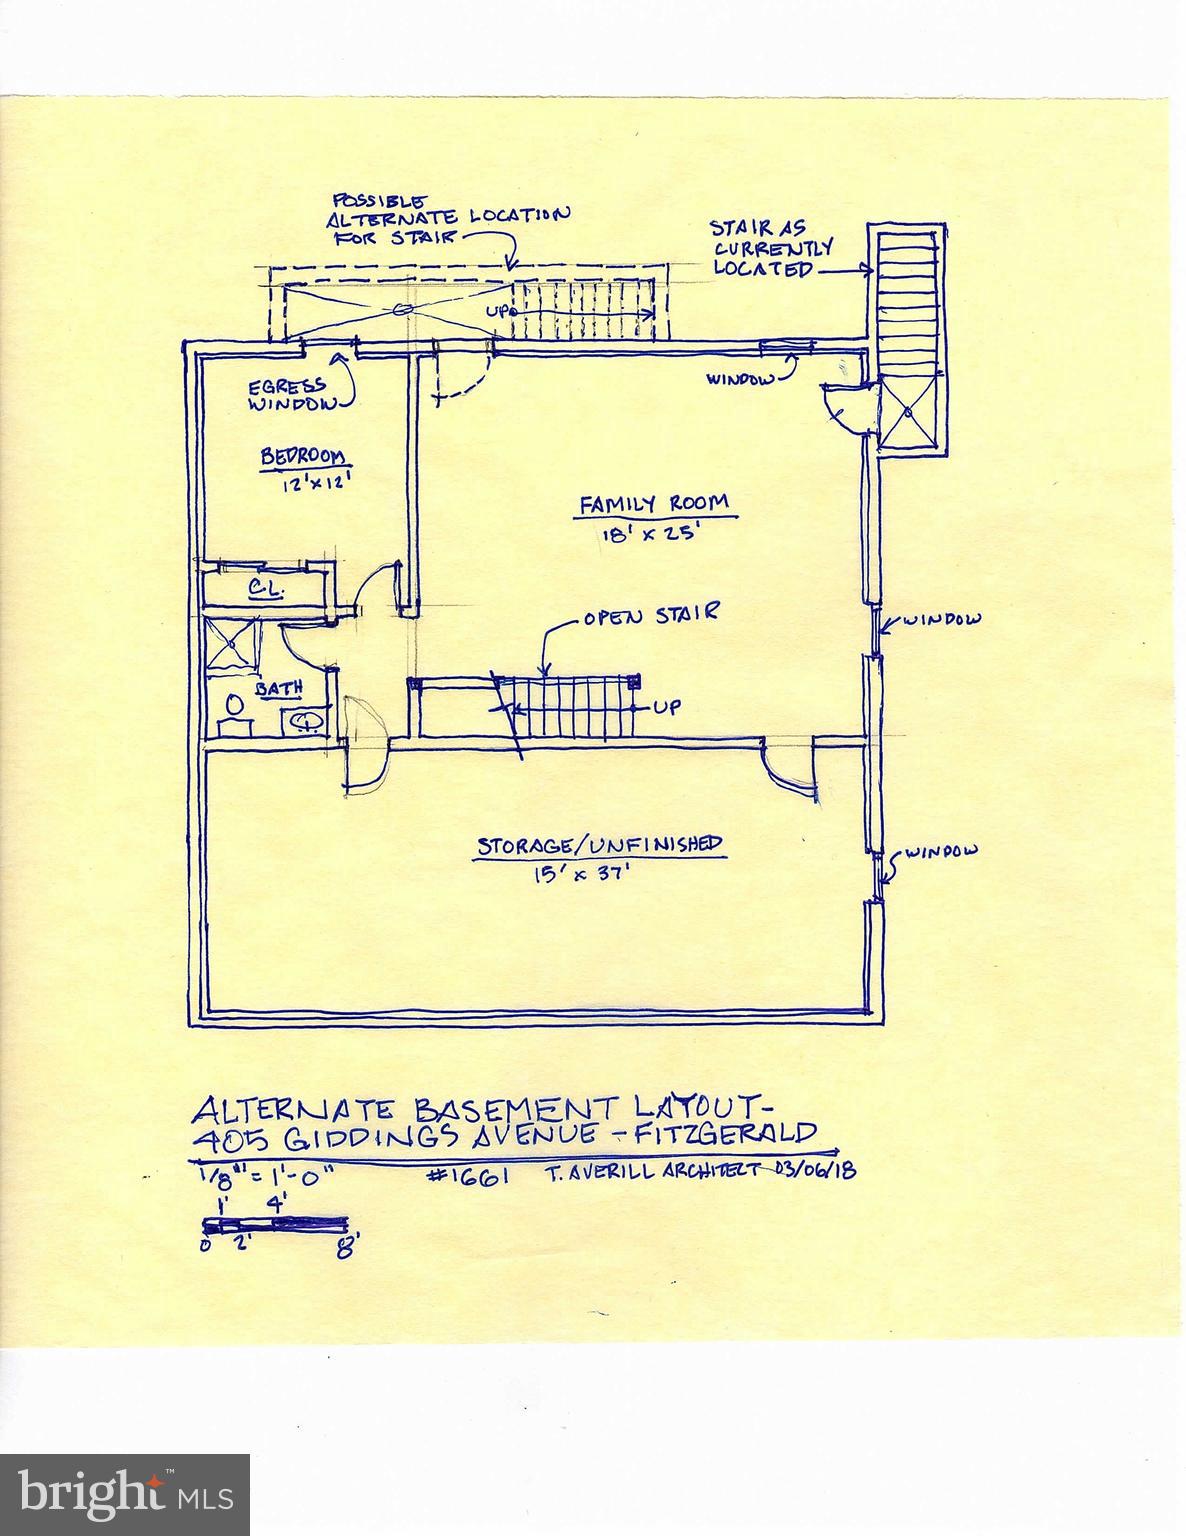 POSSIBLE
ALTERNATE LOCATION
FOR STAIR
STAIR AS
CURRENTLY
LOCATED
UP
EGRESS
WINDOW
WINDOW
BEDROOM
12' x 12'
FAMILY ROOM
18' x 25'
CL.
OPEN STAIR
WINDOW
BATH
UP
STORAGE/UNFINISHED
15' x 37'
WINDOW
ALTERNATE BASEMENT LAYOUT-
405 GIDDINGS AVENUE - FITZGERALD
1/8" = 1'-0" #1661 T. AVERILL ARCHITECT 03/06/18
1' 4'
0 2' 8'
bright™ MLS